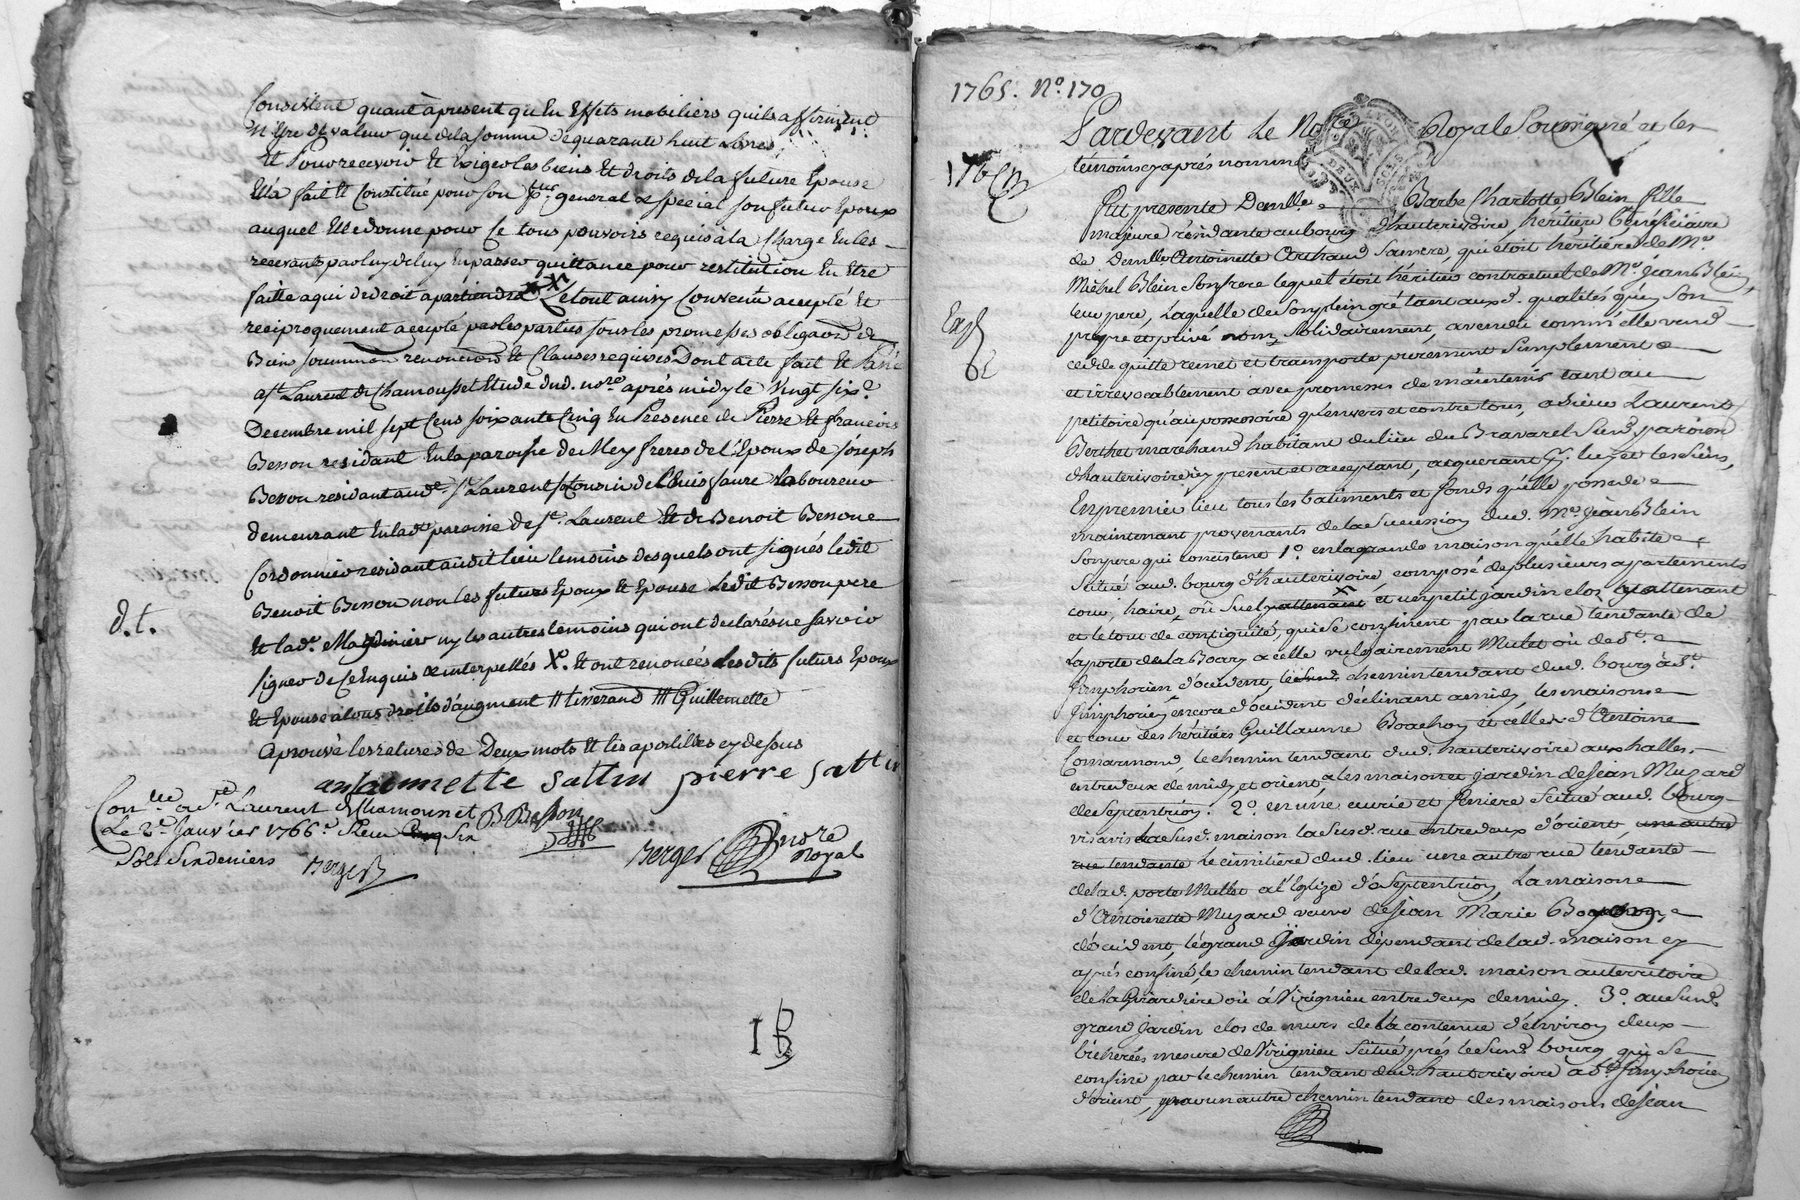 Consistent quant àpresent qu'En Effets mobiliers quils affirment
N'Etre de valeur que dela somme de quarante huit Livres
Et Pour recevoir Et Exiger les biens Et droits dela future Epouse
Ella fait Et Constitué pour son general & special son futur Epoux
auquel Elle donne pour Ce tous pouvoirs requis à la Charge En les
recevant par luy de luy En passer quittance pour restitution En Etre
faitte a qui de droit apartiendra X Le tout ainsy Convenu accepté Et
reciproquement accepté par les parties sous les promesses obligaon de
Biens soummon renoncions Et Clauses requises Dont acte fait Et Passé
a St. Laurent de Chamousset Etude dud. nore. après midy le Vingt six
Decembre mil sept Cens soixante Cinq En Presence de Pierre Et francois
Besson residant En la paroisse de Meys freres de l'Epoux de joseph
Besson residant aud. St. Laurent Cousin de Faure Laboureur
demeurant En lade paroisse de St. Laurent Et de Benoit Bessone
Cordonnier residant audit lieu temoins desquels ont signés ledit
Benoit Besson non les futurs Epoux Et Epouse Ledit Besson pere
Et lade. ny les autres temoins qui ont declarés ne savoir
signer de Ce Enquis & interpellés X Et ont renoncés Lesdits futurs Epoux
d.t.
Et Epouse a tous droits d'augment // tisserand /// Guillemette
Aprouvé les ratures de Deux mots Et les apostilles cy dessus
antoinnette pierre
Conlle a St. Laurent de Chamousset B Besson
Le 2e. Janvier 1766. Reçu Six
Sols Six deniers Berger
Berger nore
Royal
1765. No. 170
Pardevant Le Nore Royal Soussigné et les
témoins cy après nommés
Exp
Fut presente Demlle. Barbe Charlotte Blein fille
majeure résidante au bourg d'hauterivoire, heritiere beneficiaire
de Demlle Antoinette Sa mere, qui étoit héritiere de Me
Michel Blein Son frere lequel étoit héritier contractuel de Me. jean Blein,
leur pere, Laquelle de Son plein gré tant aux d. qualités qu'en Son
propre et privé nom, Solidairement, a vendu comm' elle vend
cede quitte remet et transporte purement Simplement &
et irrevocablement avec promesses de maintenir tant au
petitoire qu'au possessoire qu'envers et contre tous, a Sieur Laurent
Berthet marchand habitant du lieu du Bravarel Susd. paroisse
d'hauterivoire icy present et acceptant, acquerant pr. luy et les Siens,
En premier lieu tous les batiments et fonds qu'elle possede
maintenant provenants de la Succession dud. Me. jean Blein
Son pere qui consistent 1o. en la grande maison qu'elle habite
Scitué aud. bourg d'hauterivoire composé de plusieurs apartements
cour, haire, ou Suel attenant et un petit jardin clos y attenant
et le tout de contiguité, qui Se confinent par la rue tendante de
La porte de la Boary a celle vulgairement Mulet ou de St.
Simphorien d'occident, le chemin tendant dud. bourg à St.
Simphorien encore d'occident déclinant a midy, les maisons
et cour des héritiers Guillaume Boachon et celles d'Antoine
Comarmond, le chemin tendant dud. hauterivoire aux halles
entredeux de midy et orient, les maison et jardin de Jean Muzard
de Septentrion. 2o. en une eurie et feniere Scitué aud. bourg
vis avis la Susd. maison la Susd. rue entredeux d'orient, une autre
rue tendante Le cimitiere dud. lieu une autre rue tendante
de lad. porte Mullet a l'Eglize d'Septentrion, La maison
d'Antoinette Muzard veuve de Jean Marie Boachon,
d'occident, le grand jardin dépendant de lad. maison cy
après confiné, le chemin tendant de lad. maison au territoire
de la Girardiere ou à Virignieu entredeux de midy. 3o. au Susd.
grand jardin clos de murs de la contenue d'environ deux
bicherées mesure de Virignieu Scitué près le Susd. bourg qui Se
confine par le chemin tendant dud. hauterivoire a St. Simphorien
d'orient, par un autre chemin tendant des maisons de Jean